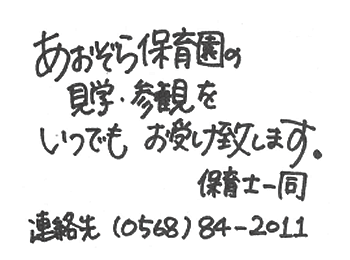 あおぞら保育園の
見学・参観を
いつでも お受け致します。
保育士一同
連絡先 (0568) 84-2011